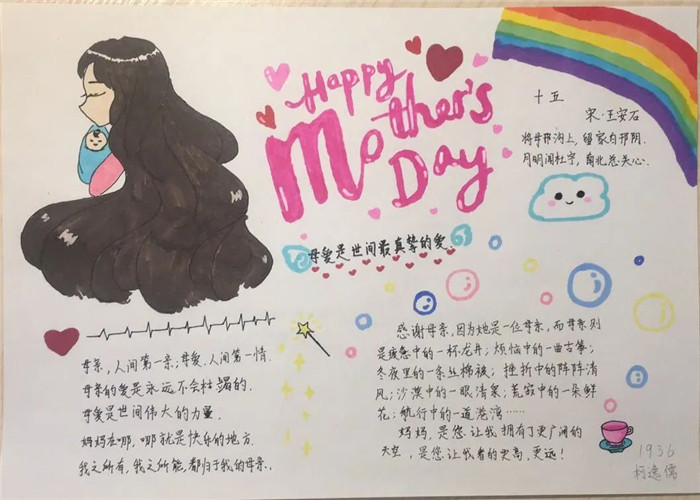 Happy
Mother's
Day
十五
宋·王安石
将母邗沟上，留家白邗阴.
月明闻杜宇，南北总关心.
母爱是世间最真挚的爱.
母亲，人间第一亲；母爱.人间第一情.
母亲的爱是永远不会枯竭的.
母爱是世间伟大的力量.
妈妈在哪，哪就是快乐的地方.
我之所有，我之所能，都归于我的母亲.
感谢母亲，因为她是一位母亲，而母亲则
是疲惫中的一杯龙井；烦恼中的一曲古筝；
冬夜里的一条丝棉被；挫折中的阵阵清
风；沙漠中的一眼清泉；荒寂中的一朵鲜
花；航行中的一道港湾……
妈妈，是您让我拥有了更广阔的
天空，是您让我看的更高，更远！
1936
柯逸儒